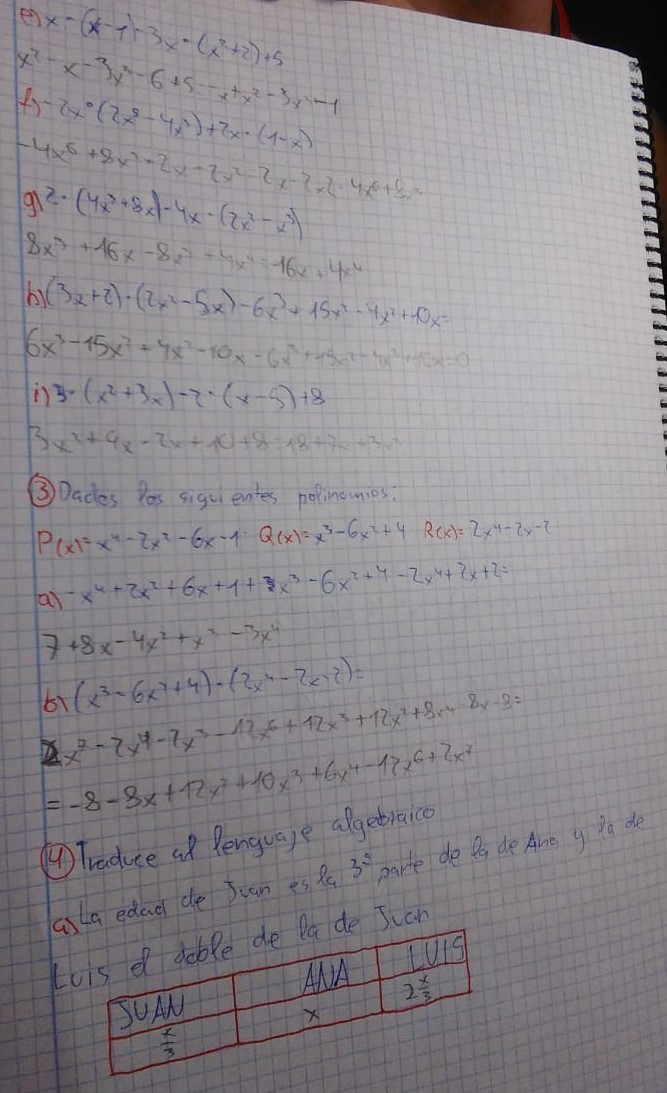 e) x · (x-1) - 3x · (x²+2) + 5
x² - x - 3x³ - 6 + 5
f) -2x² · (2x³ - 4x²) + 2x · (1-x)
g) 2 · (4x³ + 8x) - 4x · (2x² - x³)
8x³ + 16x - 8x³ + 4x⁴ = 16x + 4x⁴
h) (3x+2) · (2x² - 5x) - 6x³ + 15x² - 4x² + 10x =
6x³ - 15x² + 4x² - 10x - 6x³ + 15x² - 4x² + 10x = 0
i) 3 · (x² + 3x) - 2 · (x - 5) + 8
3x² + 9x - 2x + 10 + 8 = 18 + 7x + 3x²
3 Dados los siguientes polinomios:
P(x) = x⁴ - 2x² - 6x - 1 Q(x) = x³ - 6x² + 4 R(x) = 2x⁴ - 2x - 2
a) -x⁴ + 2x² + 6x + 1 + x³ - 6x² + 4 - 2x⁴ + 2x + 2 =
7 + 8x - 4x² + x³ - 3x⁴
b) (x³ - 6x² + 4) · (2x⁴ - 2x - 2) =
2x⁷ - 2x⁴ - 2x³ - 12x⁶ + 12x³ + 12x² + 8x⁴ - 8x - 8 =
= -8 - 8x + 12x² + 10x³ + 6x⁴ - 12x⁶ + 2x⁷
4 Traduce al lenguaje algebraico
a) La edad de Juan es la 3ª parte de la de Ana y la de
Luis el doble de la de Juan
JUAN ANA LUIS
x/3 x 2 x/3